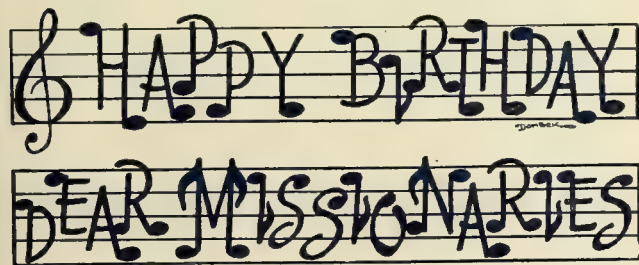 HAPPY BIRTHDAY
DOMBEK
DEAR MISSIONARIES